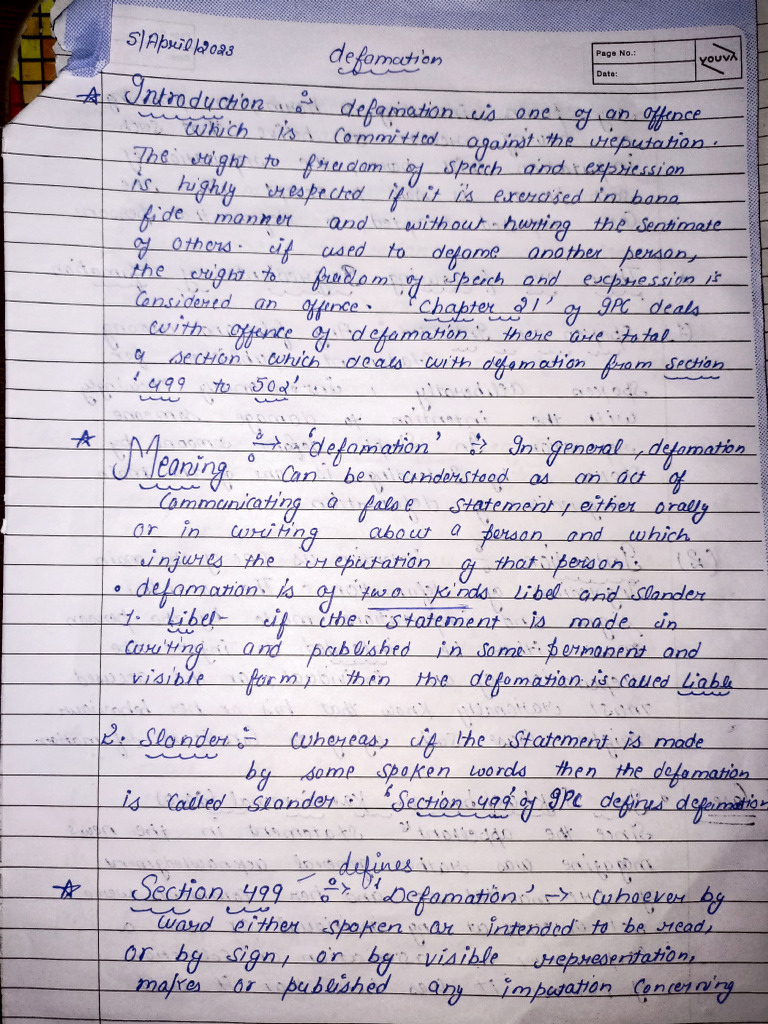 5/April/2023
defamation
Page No.:
Date:
YOUVA
☆ Introduction :- defamation is one of an offence
which is committed against the reputation.
The right to freedom of speech and expression
is highly respected if it is exercised in bona
fide manner and without hurting the sentimate
of others. if used to defame another person,
the right to freedom of speech and expression is
considered an offence. 'Chapter 21' of IPC deals
with offence of defamation there are total
4 section which deals with defamation from section
'499 to 502'
☆ Meaning :-> 'defamation' :-> In general, defamation
can be understood as an act of
communicating a false statement, either orally
or in writing about a person and which
injures the reputation of that person.
• defamation is of two kinds Libel and Slander
1. Libel- if the statement is made in
writing and published in some permanent and
visible form, then the defamation is called Liable
2. Slander :- whereas, if the statement is made
by some spoken words then the defamation
is called slander. 'Section 499' of IPC defines defamation
defines
☆ Section 499 :-> 'Defamation' -> whoever by
word either spoken or intended to be read,
or by sign, or by visible representation,
makes or published any imputation concerning